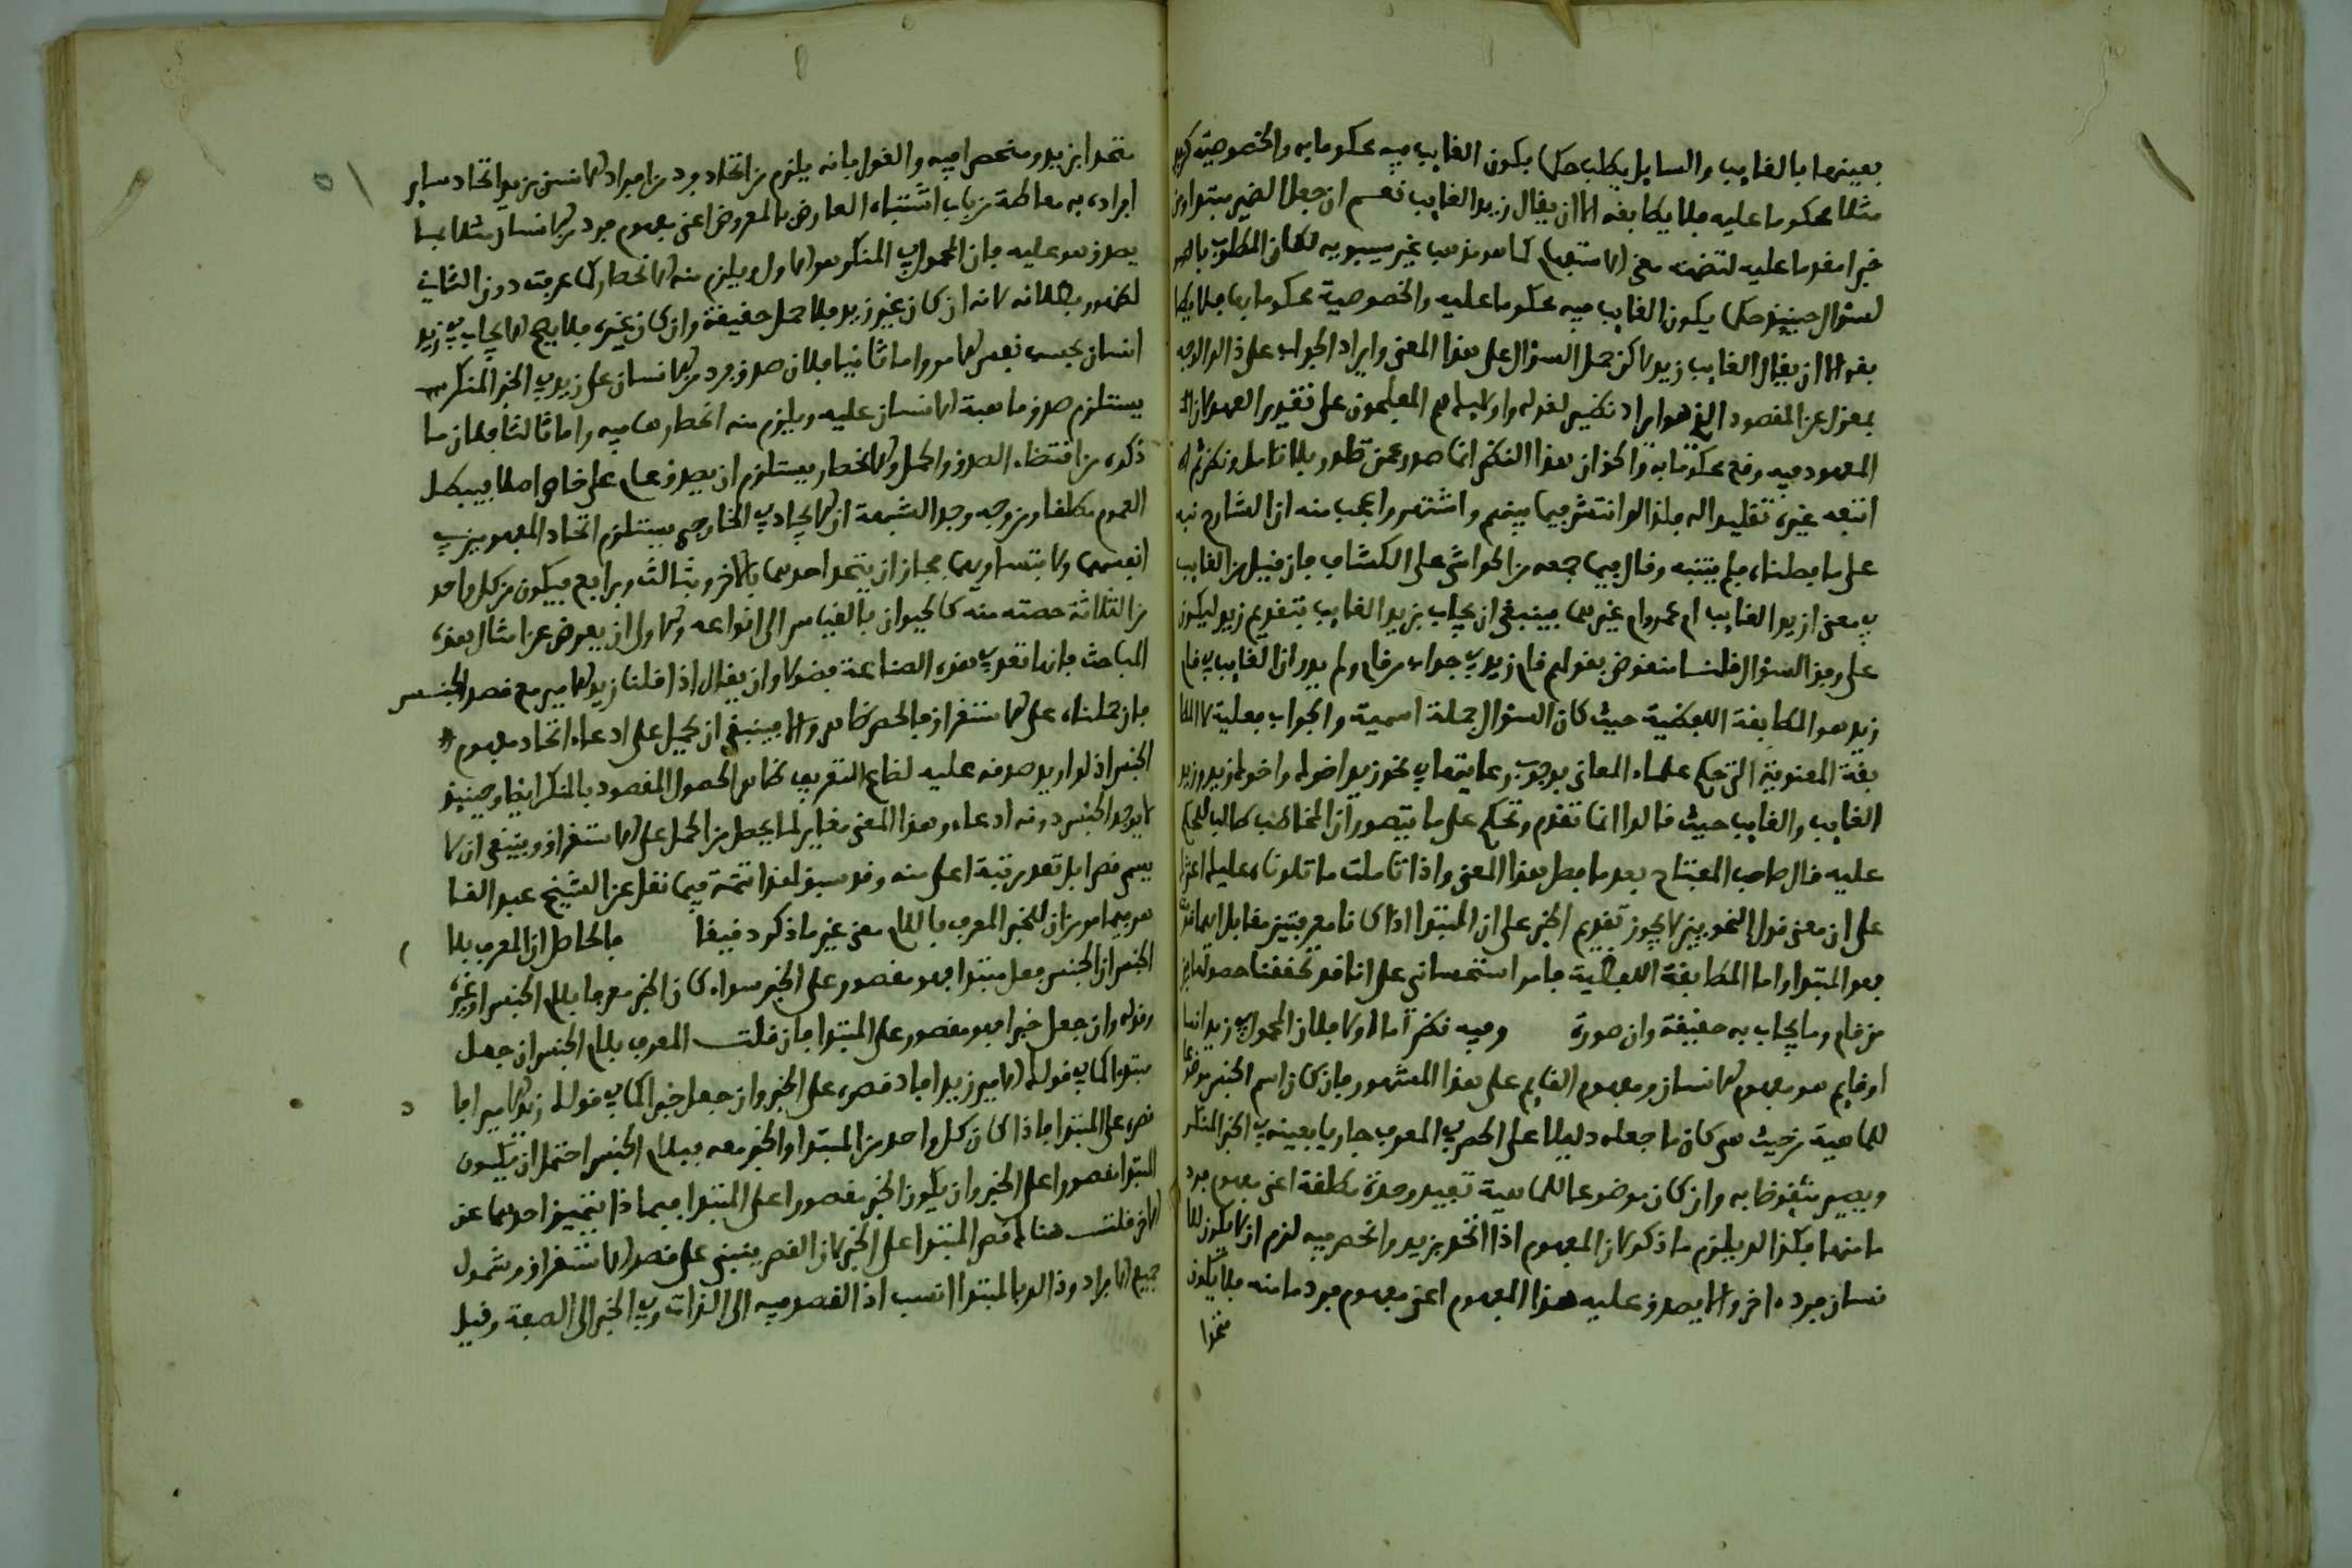 بعينها بالقايم والسايل يطلب حكما يكون القايم فيه محكوما به والخصوصية كزيد
مثلا محكوما عليه فلا يطابقه الا ان يقال زيد القايم نعم ان جعل الضمير مبتدا ومن
خبرا مقدما عليه لتضمنه معنى الاستفهام كما هو مذهب غير سيبويه لكان المطلوب بالهم
لسؤال حينئذ حكما يكون القايم فيه محكوما عليه والخصوصية محكوما بها فلا يطا
بقه الا ان يقال القايم زيد لاكن حمل السؤال على هذا المعنى وايراد الجواب على ذالك الوجه
بمعزل عن المقصود الذي هو ايراد نظير لقوله واولئك هم المفلحون على تقدير العهد لان
المعهود فيه وقع محكوما به والحق ان هذا النظم انما صدر عمن تطور بلا تامل ونظر ثم
اتبعه غيره تقليدا له فلذالك انتشر فيما بينهم واشتهر واعجب منه ان الشارح نبه
على ما بطناه فلم يتنبه وقال فيما جمعه من الحواشي على الكشاف فان قيل من القايم
في معنى ازيد القايم ام عمرو ام غيرهما فينبغي ان يجاب بزيد القايم بتقديم زيد ليكون
على وفق السؤال قلنا منقوض بقولهم قام زيد في جواب من قام ولم يدر ان الفايت في قام
زيد هو المطابقة اللفظية حيث كان السؤال جملة اسمية والجواب فعلية لا المطا
بقة المعنوية التي حكم علماء المعاني بوجوب رعايتها في نحو زيد اخوك واخوك زيد وزيد
القايم والقايم حيث قالوا انما تقدم وتحكم على ما يتصور ان المخاطب طالب للحكم
عليه قال صاحب المفتاح بعد ما فصل هذا المعنى واذا تاملت ما تلوناه عليك اعثر
على ان معنى قول النحويين لا يجوز تقديم الخبر على المبتدا اذا كانا معرفتين مقابل ايهما قدمت
فهو المبتدا واما المطابقة اللفظية فامر استحساني على انا قد حققنا حصولها في
من قام وما يجاب به حقيقة وان صورة وفيه نظر اما اولا فلان المحمول في زيد انسا
او قايم هو مفهوم الانسان ومفهوم القايم على هذا المشهور فان كان اسم الجنس موضوعا
للماهية من حيث هي كان ما جعله دليلا على الحصر في المعرف جاريا بعينه في الخبر المنكر
ويصير منقوضا به وان كان موضوعا للماهية تقييد وحدة مطلقة اعني مفهوم فرد
ما منها فكذالك يلزم ما ذكر لان المفهوم اذا اتحد بزيد وانحصر فيه لزم ان لا يكون للا
نسان فرد ءاخر والا يصدق عليه هذا المفهوم اعني مفهوم فرد ما منه فلا يكون
متحدا
متحدا بزيد ومنحصرا فيه والقول بانه يلزم من اتحاد فرد من افراد الانسان بزيد اتحاد ساير
افراده به مغالطة من باب اشتباه العارض بالمعروض اعني مفهوم فرد من الانسان مثلا بما
يصدق هو عليه فان المحمول في المنكر هو الاول ويلزم منه الانحصار كما عرفت دون الثاني
لظهور بطلانه لانه ان كان غير زيد فلا حمل حقيقة وان كان عينه فلا يصح الايجاب في زيد
انسان بحسب نفس الامر واما ثانيا فلان صدق فرد من الانسان على زيد في الخبر المنكر
يستلزم صدق ماهية الانسان عليه ويلزم منه انحصارها فيه واما ثالثا فلان ما
ذكره من اقتضاء الصدق والحمل والانحصار يستلزم ان يصدق عام على خاص اصلا فيبطل
العموم مطلقا ومن وجه وجد الشبهة ان الايجاد في الخارجي يستلزم اتحاد المفهومين في
انفسهما ولا بتساويهما فجاز ان يتحد احدهما بالاخر وبثالث وبرابع فيكون من كل واحد
من الثلاثة حصته منه كالحيوان بالقياس الى انواعه والاولى ان يعرض عن امثال هذه
المباحث فانها تعد في هذه الصناعة فضولا وان يقال اذا قلنا زيد الامير مع قصد الجنس
فان حملناه على الاستغراق فالحصر ظاهر والا فينبغي ان يحمل على ادعاء اتحاد مفهوم
الجنس اذ لو اريد صدقه عليه لضاع التعريف ظاهرا لحصول المقصود بالمنكر ايضا وحينئذ
لا يوجد الجنس دونه ادعاء وهذا المعنى مغاير لما يحصل من الحمل على الاستغراق وينبغي ان لا
يسمى قصرا بل تعد مرتبة اعلى منه وقد سبق لهذا تتمة فيما نقل عن الشيخ عبد القا
هر فيما مر من ان للخبر المعرف باللام معنى غير ما ذكر دقيقا فالحاصل ان المعرف بلا
الجنس ان الجنس جعل مبتدا فهو مقصور على الخبر سواء كان الخبر معرفا بلام الجنس او غيره
وقوله وان جعل خبرا فهو مقصور على المبتدا فان قلت المعرف بلام الجنس ان جعل
مبتدا كما في قولك الامير زيد افاد قصره على الخبر وان جعل خبرا كما في قولك زيد الامير افا
قصره على المبتدا فاذا كان كل واحد من المبتدا والخبر معرفا بلام الجنس احتمل ان يكون
المبتدا مقصورا على الخبر وان يكون الخبر مقصورا على المبتدا فبماذا يتميز احدهما عن
الاخر قلت هناك قصر المبتدا على الخبر لان القصر يبنى على قصد الاستغراق وشمول
جميع الافراد وذالك بالمبتدا انسب اذ القصد فيه الى الذات وفي الخبر الى الصفة وقيل